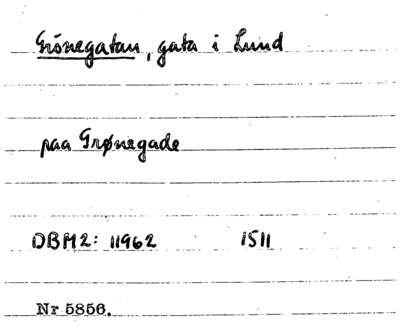 Grönegatan, gata i Lund
paa Grønegade
DBM2: 11962 1511
Nr 5856.